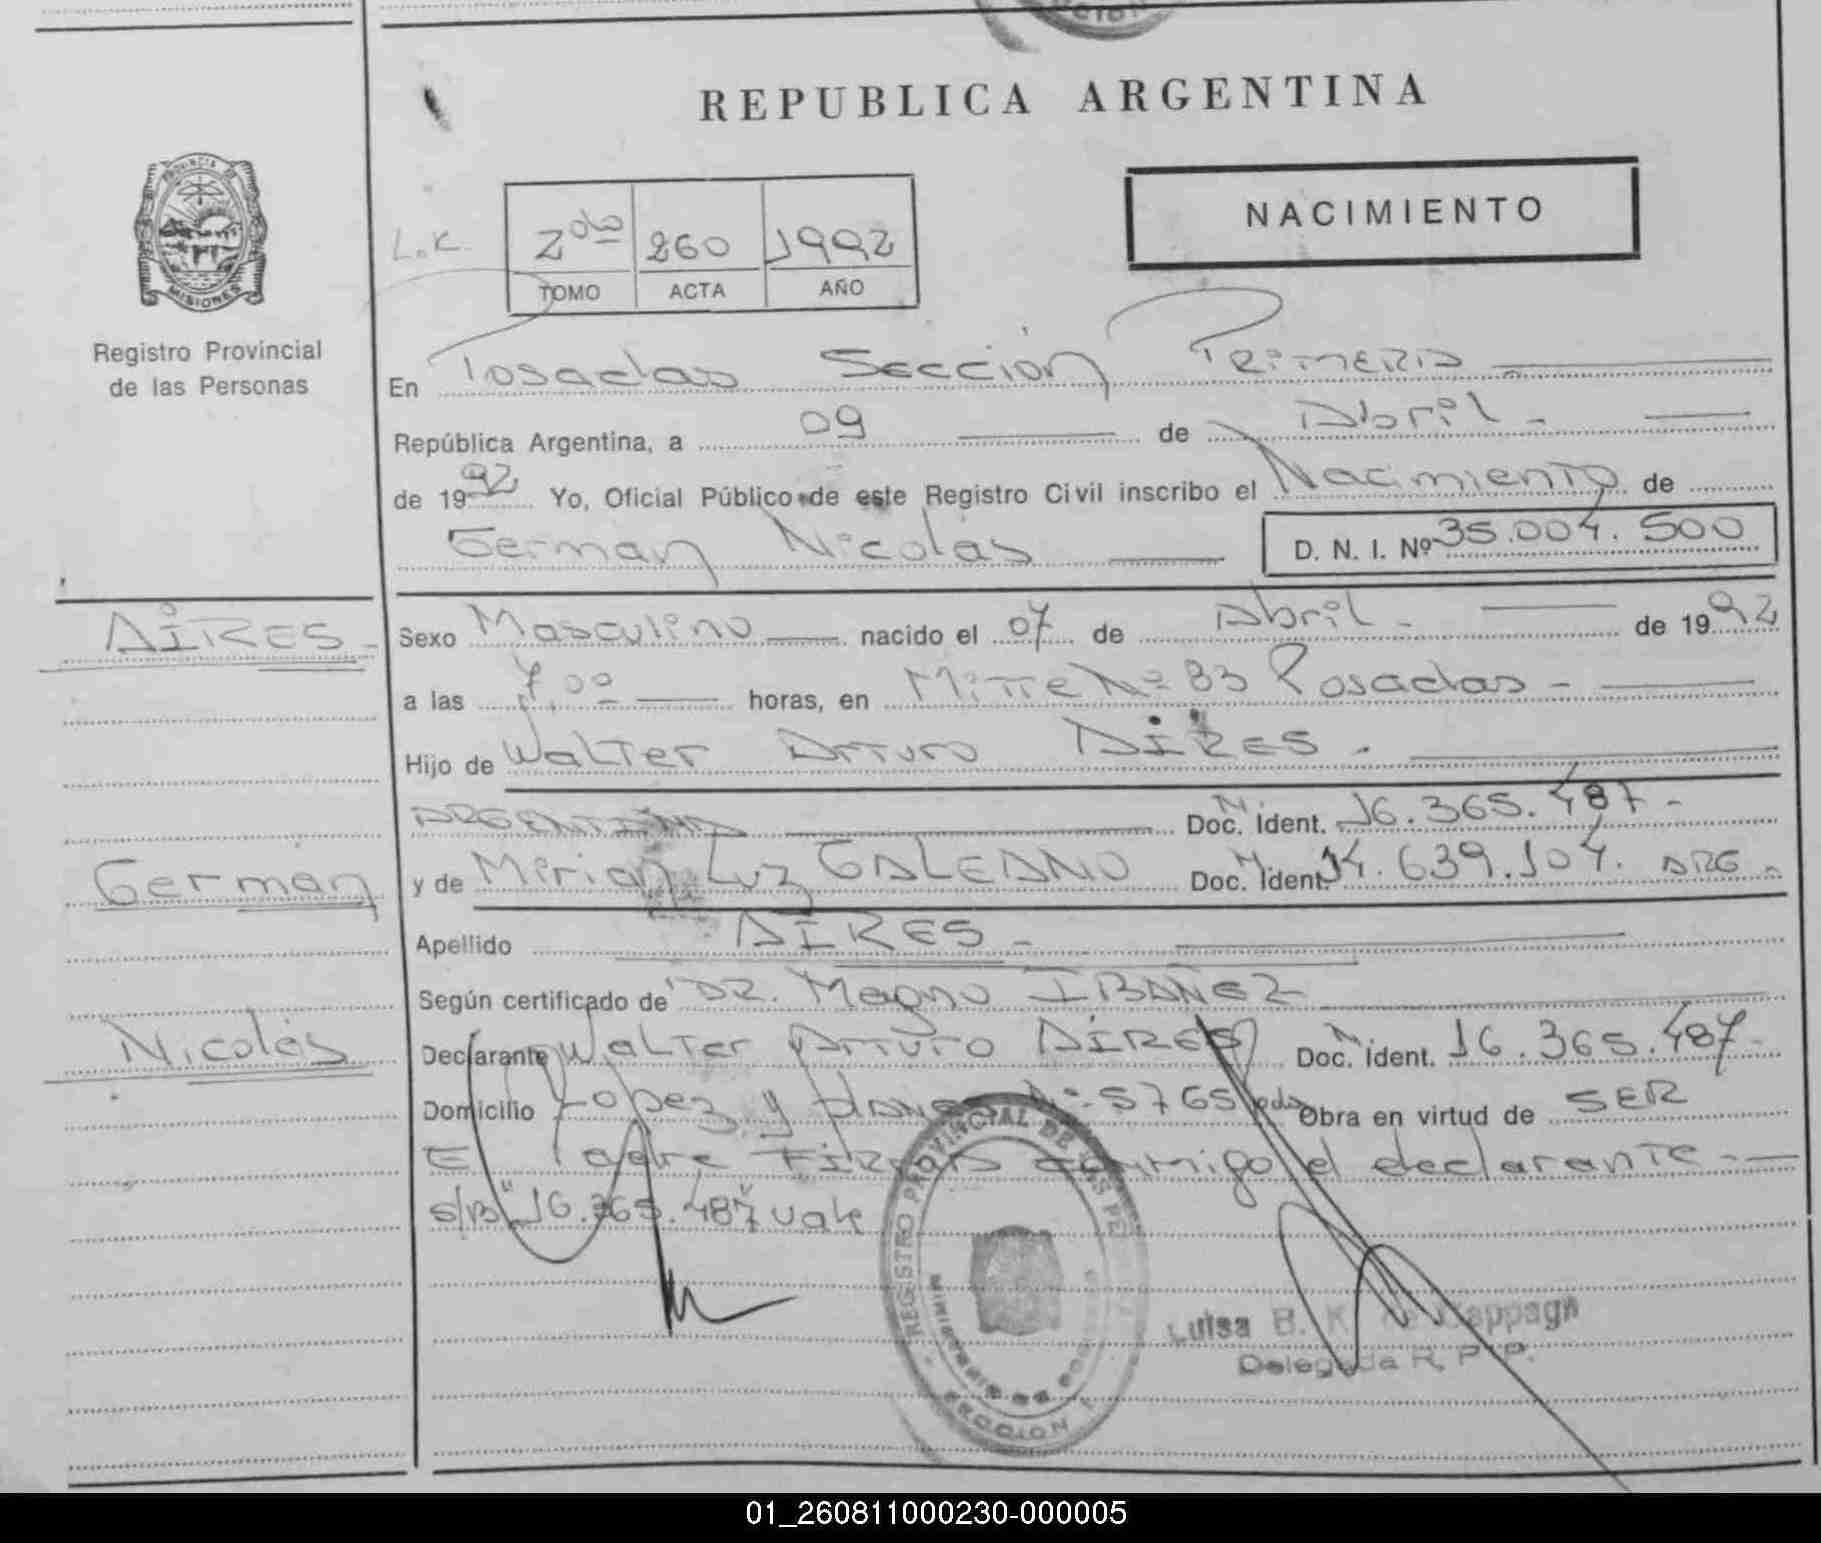 CION
REPUBLICA ARGENTINA
PROVINCIA DE
MISIONES
Registro Provincial
de las Personas
L.K.
2do 260 1992
TOMO ACTA AÑO
NACIMIENTO
En Posadas Sección Primera
República Argentina, a 09 de Abril.-
de 1992 Yo, Oficial Público de este Registro Civil inscribo el Nacimiento de
German Nicolás D. N. I. Nº 35.004.500
AIRES.-
Sexo Masculino nacido el 07 de Abril.- de 1992
a las 7,00 horas, en Mitre Nº 83 Posadas-
Hijo de Walter Arturo AIRES.
ARGENTINA Doc. Ident. 16.365.487-
German
y de Mirian Luz GALEANO Doc. Ident. 14.639.104. ARG.
Apellido AIRES-
Según certificado de DR. Magno IBAÑEZ
Nicolás
Declarante Walter Arturo AIRES Doc. Ident. 16.365.487-
Domicilio Lopez y planes Nº 5765 pdas Obra en virtud de SER
El Padre FIRMA conmigo el declarante.-
S/B "16.365.487" vale
REGISTRO PROVINCIAL DE LAS PER
MINISTERIO DE
Luisa B. K. de Cappagli
Delegada R. P. P.
01_260811000230-000005